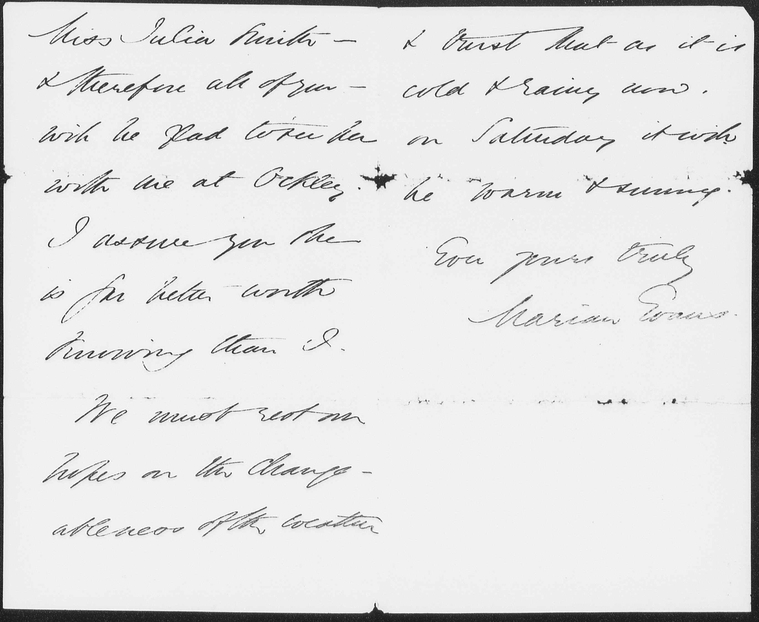 Miss Julia Smith –
& therefore all of you –
will be glad to see her
with me at Ockley.
I assure you she
is far better worth
knowing than I.
We must rest our
hopes on the change-
ableness of the weather
& trust that as it is
cold & rainy now,
on Saturday it will
be warm & sunny.
Ever yours truly
Marian Evans.